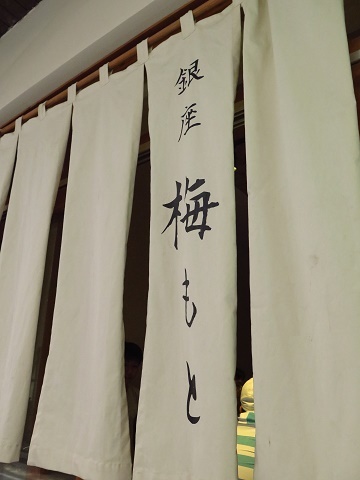 銀座
梅もと